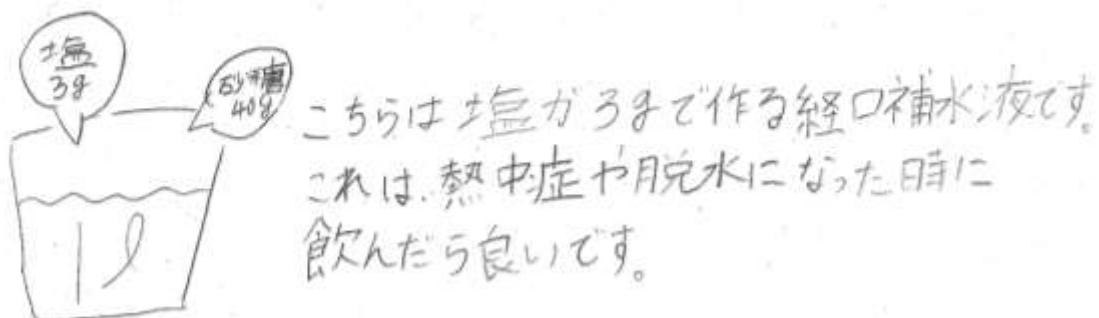 塩
3g
砂糖
40g
1ℓ
こちらは塩が3gまで作る経口補水液です。
これは、熱中症や脱水になった時に
飲んだら良いです。